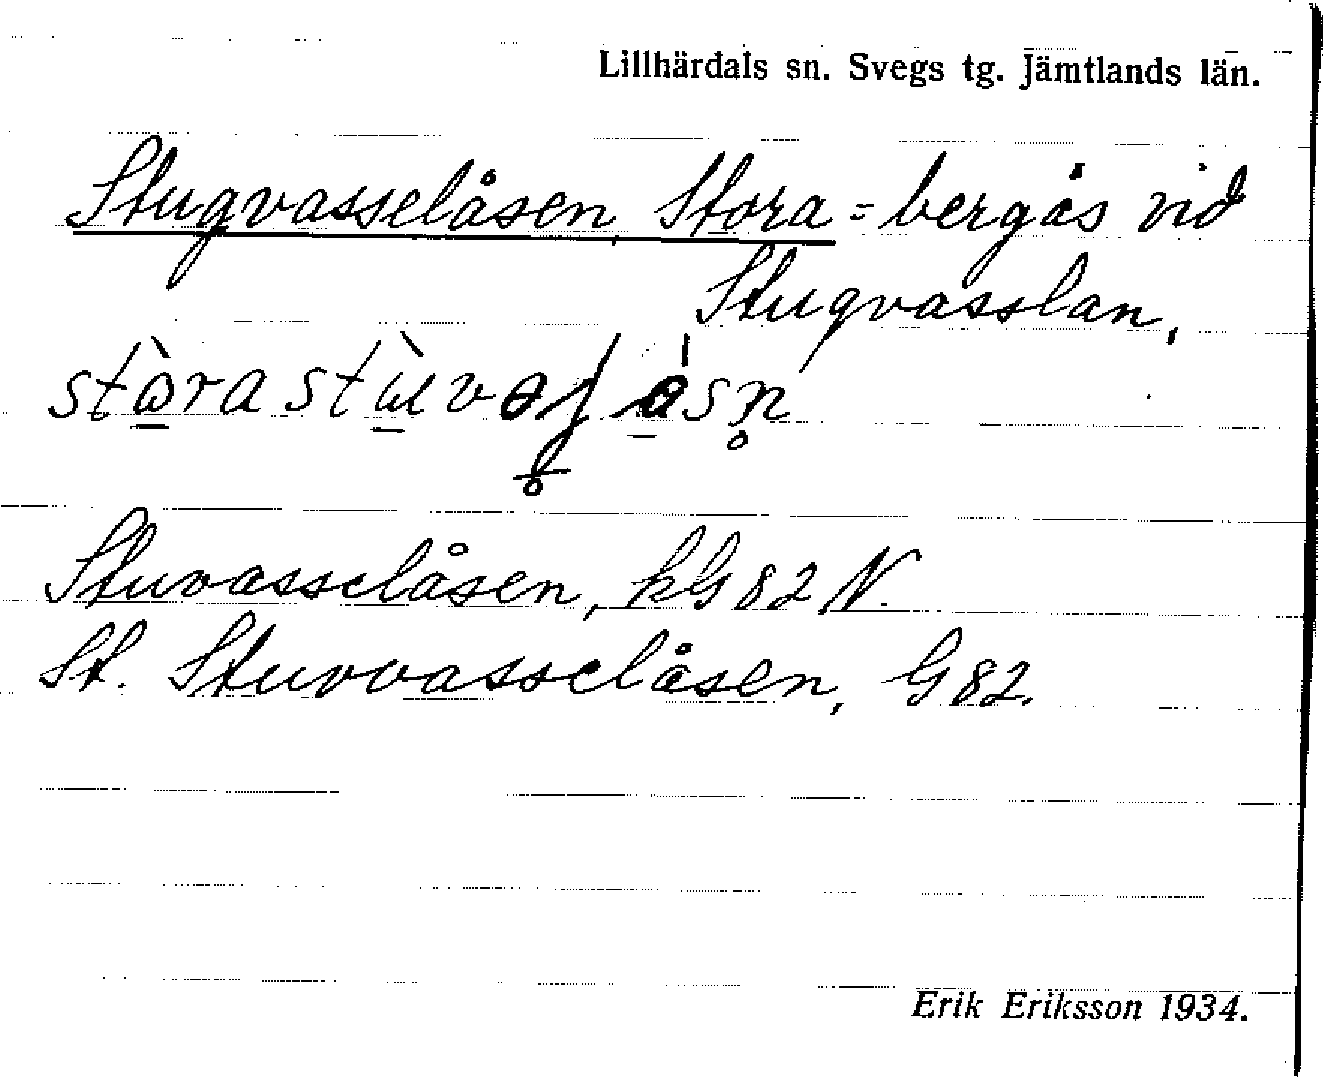 Lillhärdals sn. Svegs tg. Jämtlands län.
Stugvasselåsen Stora = bergås vid
Stugvasslan,
Stuvasselåsen, kG82 N.
St. Stuvvasselåsen, G82.
Erik Eriksson 1934.